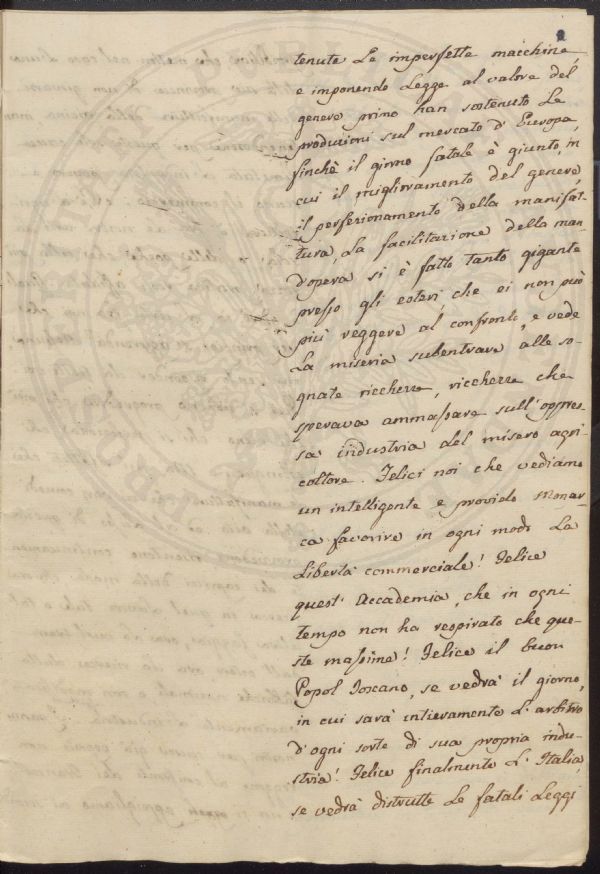 tenute Le imperfette macchine,
e imponendo Legge al valore del
genere primo han sostenuto Le
produzioni sul mercato d'Europa,
finchè il giorno fatale è giunto, in
cui il miglioramento del genere,
il perfezionamento della manifat-
tura, La facilitazione della man
d'opera si è fatto tanto gigante
presso gli esteri che ei non può
più reggere al confronto, e vede
La miseria subentrare alle so-
gnate ricchezze, ricchezze che
sperava ammassare sull'oppres-
sa industria del misero agri-
coltore. Felici noi che vediamo
un intelligente e provido Monar-
ca favorire in ogni modo La
Libertà commerciale! Felice
quest'Accademia, che in ogni
tempo non ha respirato che que-
ste massime! Felice il buon
Popol Toscano, se vedrà il giorno,
in cui sarà intieramente L'arbitro
d'ogni sorte di sua propria indu-
stria! Felice finalmente L'Italia,
se vedrà distrutte Le fatali Leggi